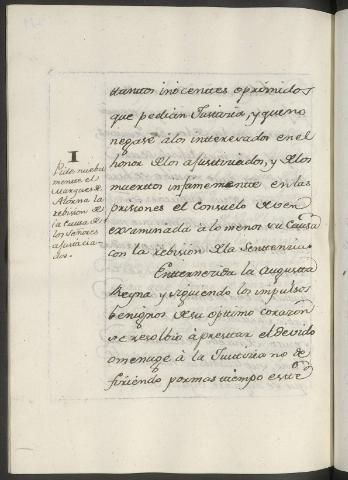 ttanttos inocenttes oprimidos,
que pedian Justicia, y que no
negase á los intteresados en el
honor de los ajusticiados, y de los
muerttos infamementte en las
prisiones el Consuelo de ver
examinada á lo menos su Causa
con la rebision de la Senttencia.
Entternecida la Augustta
Reyna y siguiendo los impulsos
benignos de su optimo corazon
se resolbio á presttar el devido
omenage á la Justicia no de
firiendo por mas tiempo este
1
Pide nueba
mente el
Marques de
Alorna la
rebision de
la Causa de
los Señores
ajusticia
dos.